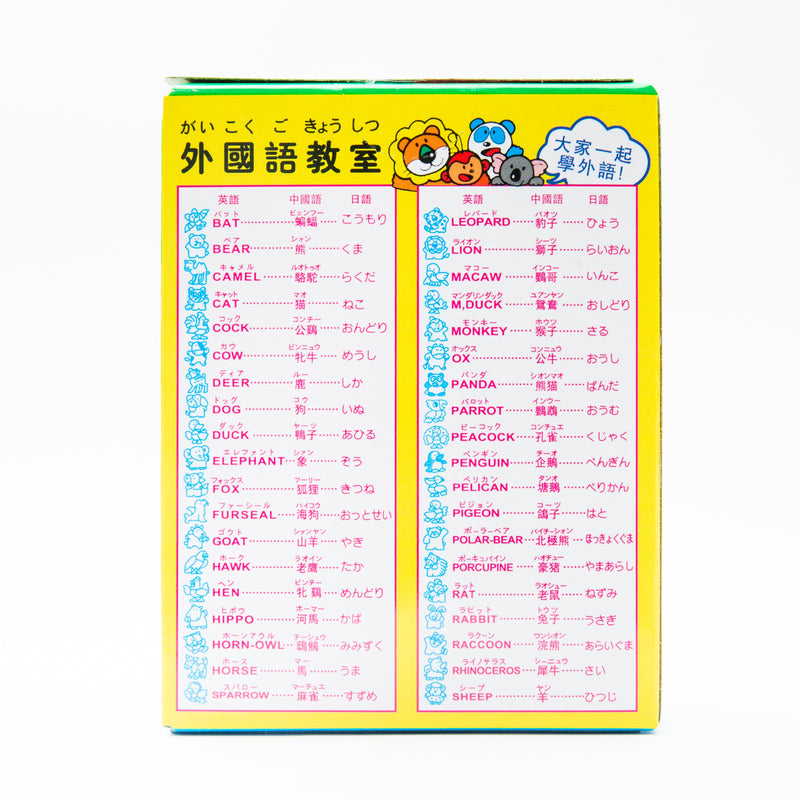 がい こく ご きょう しつ
外國語教室
大家一起
學外語!
英語 中國語 日語
バット ビェンフー
BAT 蝙蝠 こうもり
ベア シャン
BEAR 熊 くま
キャメル ルオトゥオ
CAMEL 駱駝 らくだ
キャット マオ
CAT 猫 ねこ
コック コンチー
COCK 公鷄 おんどり
カウ ピンニュウ
COW 牝牛 めうし
ディア ルー
DEER 鹿 しか
ドッグ コウ
DOG 狗 いぬ
ダック ヤーツ
DUCK 鴨子 あひる
エレファント シャン
ELEPHANT 象 ぞう
フォックス フーリー
FOX 狐狸 きつね
ファーシール ハイコウ
FURSEAL 海狗 おっとせい
ゴウト シャンヤン
GOAT 山羊 やぎ
ホーク ラオイン
HAWK 老鷹 たか
ヘン ピンチー
HEN 牝鷄 めんどり
ヒポウ ホーマー
HIPPO 河馬 かば
ホーンアウル チーシュウ
HORN-OWL 鴟鵂 みみずく
ホース マー
HORSE 馬 うま
スパロー マーチュエ
SPARROW 麻雀 すずめ
英語 中國語 日語
レパード パオツ
LEOPARD 豹子 ひょう
ライオン シーツ
LION 獅子 らいおん
マコー インコー
MACAW 鸚哥 いんこ
マンダリンダック ユアンヤン
M,DUCK 鴛鴦 おしどり
モンキー ホウツ
MONKEY 猴子 さる
オックス コンニュウ
OX 公牛 おうし
パンダ シオンマオ
PANDA 熊猫 ぱんだ
パロット インウー
PARROT 鸚鵡 おうむ
ピーコック コンチュエ
PEACOCK 孔雀 くじゃく
ペンギン チーオ
PENGUIN 企鵝 ぺんぎん
ペリカン タンオ
PELICAN 塘鵝 ぺりかん
ピジョン コーツ
PIGEON 鴿子 はと
ポーラーベア パイチーション
POLAR-BEAR 北極熊 ほっきょくぐま
ポーキュパイン ハオチュー
PORCUPINE 豪猪 やまあらし
ラット ラオシュー
RAT 老鼠 ねずみ
ラビット トウツ
RABBIT 兎子 うさぎ
ラクーン ワンシオン
RACCOON 浣熊 あらいぐま
ライノサラス シーニュウ
RHINOCEROS 犀牛 さい
シープ ヤン
SHEEP 羊 ひつじ